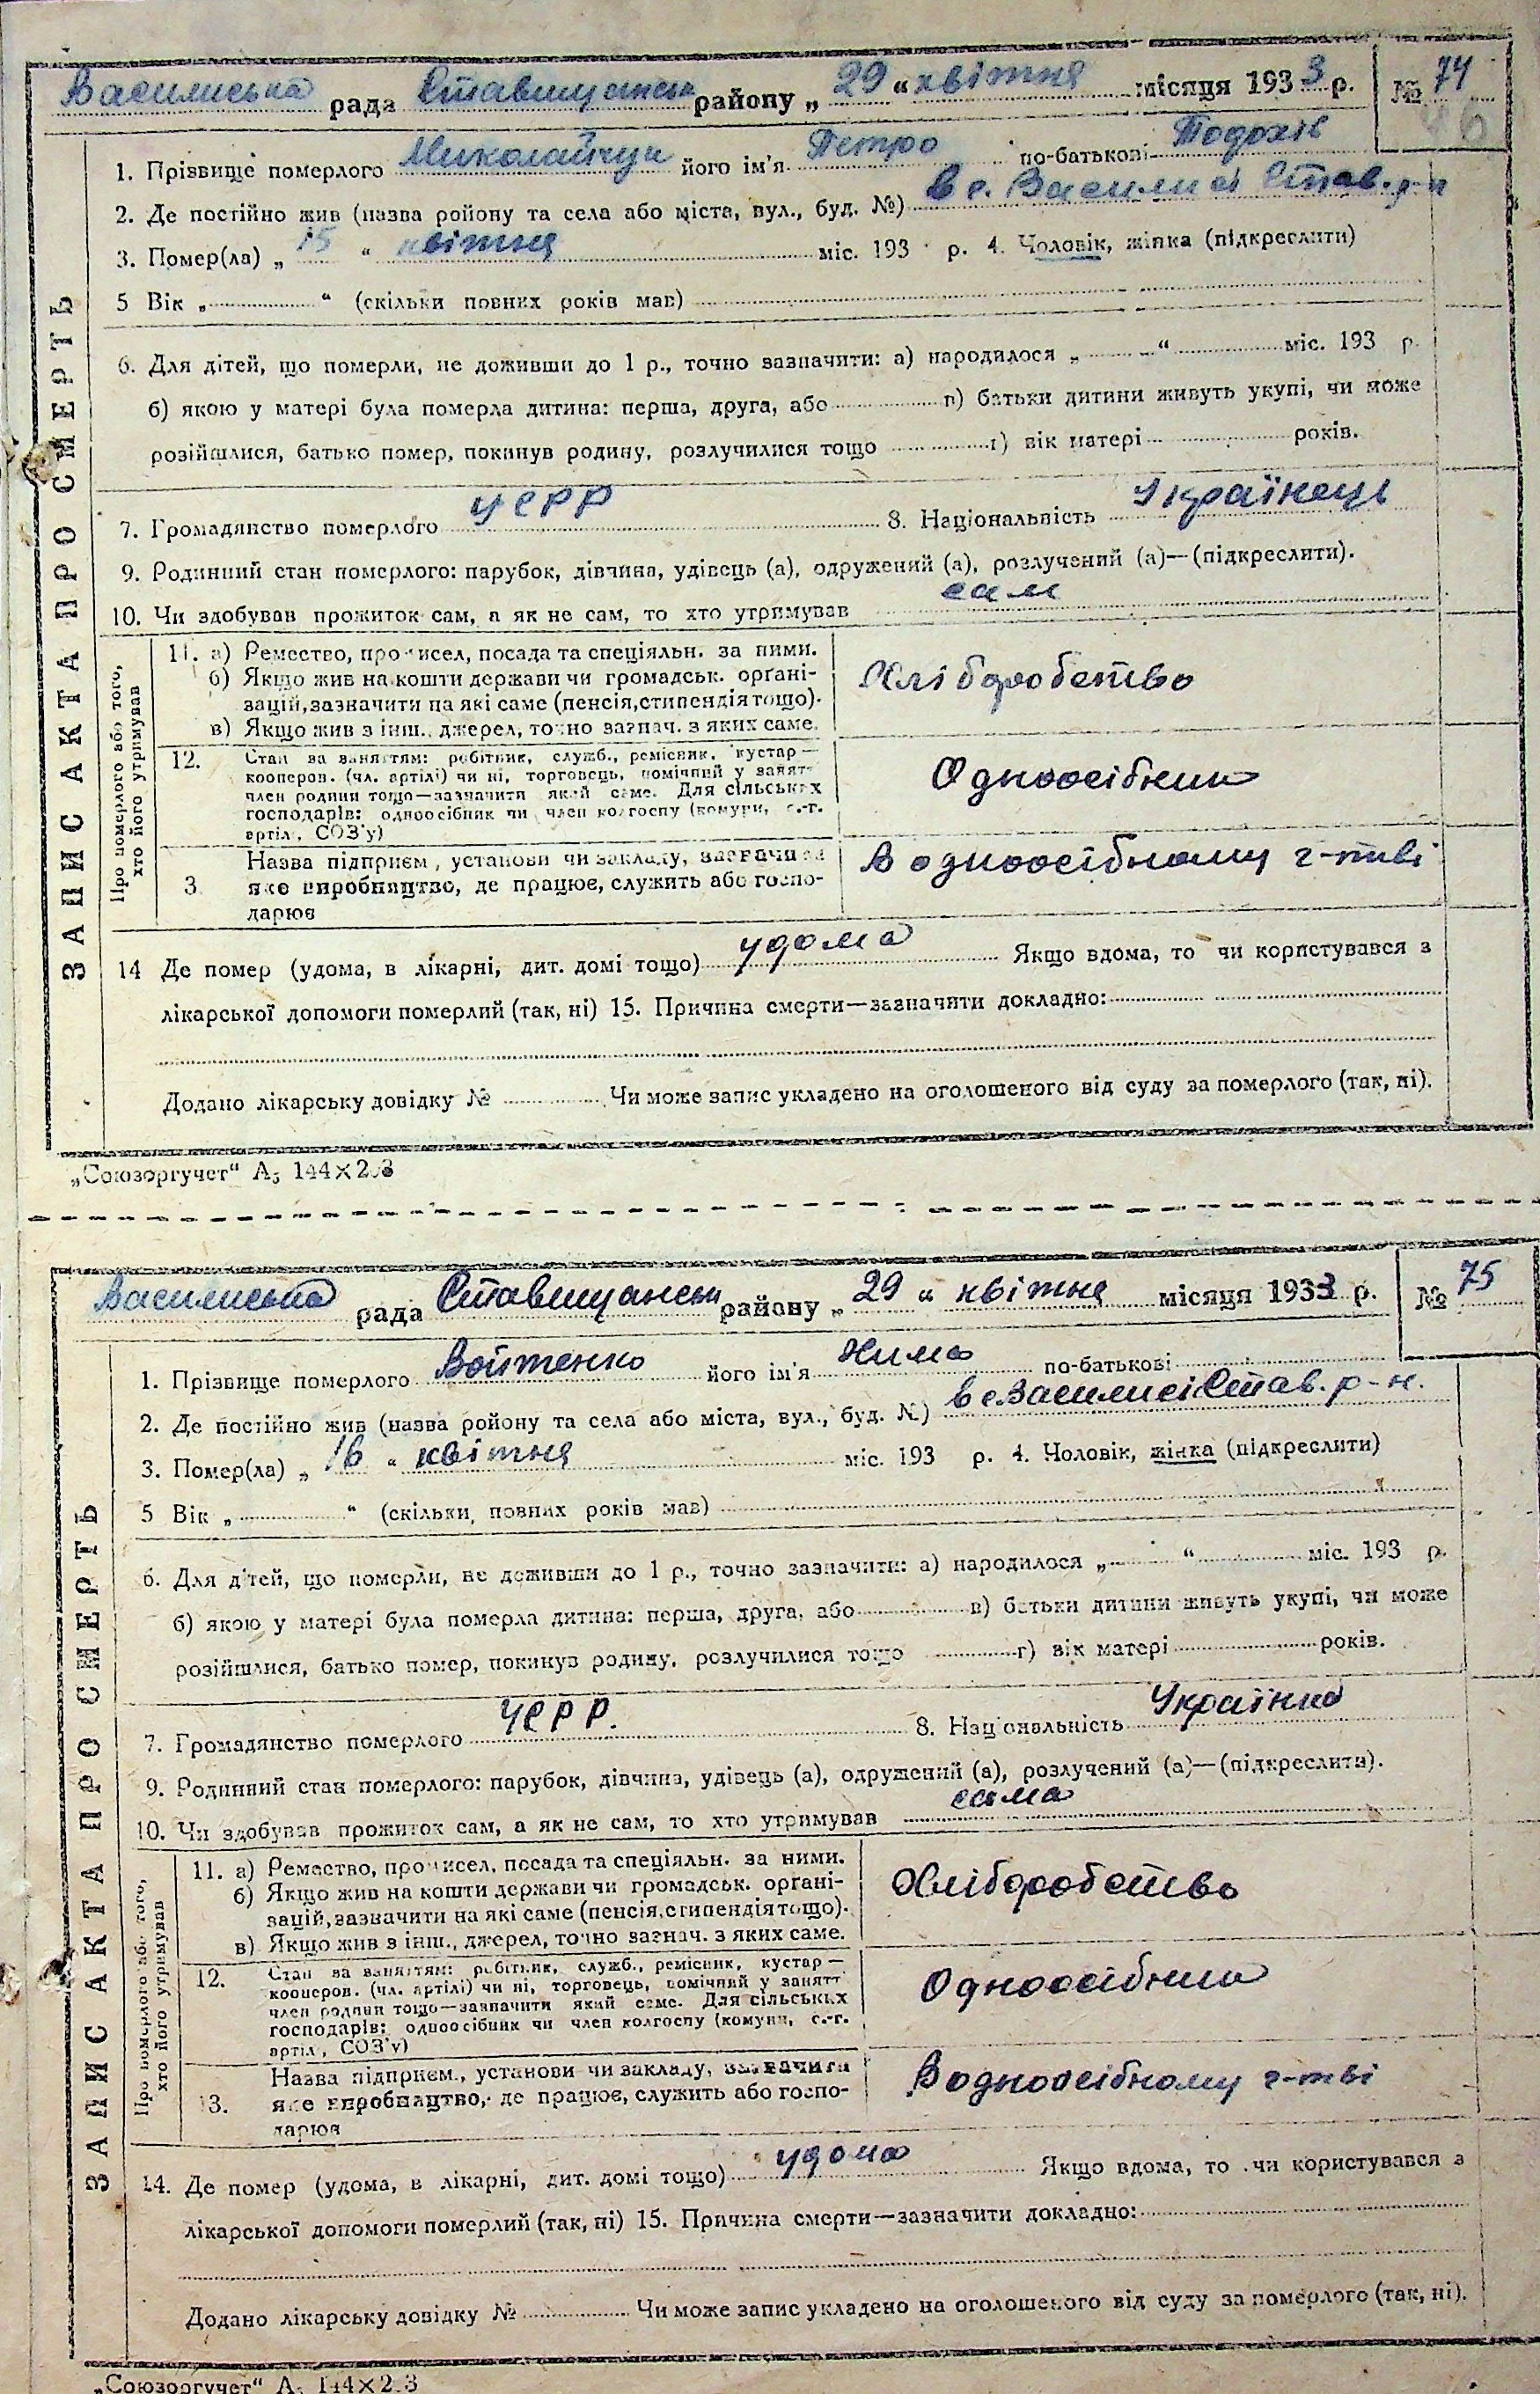 Василиська рада Ставищанськ району „ 29 “ квітня місяця 1933 р. № 74
1. Прізвище померлого Миколайчук його ім'я Петро по-батькові
2. Де постійно жив (назва ройону та села або міста, вул., буд. №) в с. Василисі Став. р-н
3. Помер(ла) „ 15 “ квітня міс. 193 р. 4. Чоловік, жінка (підкреслити)
5 Вік „ “ (скільки повних років мав)
6. Для дітей, що померли, не доживши до 1 р., точно зазначити: а) народилося „ “ міс. 193 р.
б) якою у матері була померла дитина: перша, друга, або в) батьки дитини живуть укупі, чи може
розійшлися, батько помер, покинув родину, розлучилися тощо г) вік матері років.
7. Громадянство померлого УСРР 8. Національність Українець
9. Родинний стан померлого: парубок, дівчина, удівець (а), одружений (а), розлучений (а)—(підкреслити).
10. Чи здобував прожиток сам, а як не сам, то хто утримував сам
11. а) Ремество, промисел, посада та спеціяльн. за ними.
б) Якщо жив на кошти держави чи громадськ. органі-
зацій, зазначити на які саме (пенсія, стипендія тощо).
в) Якщо жив з інш., джерел, точно зазнач. з яких саме.
Хліборобство
12. Стан за заняттям: робітник, служб., ремісник, кустар—
кооперов. (чл. артілі) чи ні, торговець, помічний у занятт
член родини тощо—зазначити який саме. Для сільських
господарів: одноосібник чи член колгоспу (комуни, с.-г.
артіл, СОЗ'у)
Одноосібник
3 Назва підприєм, установи чи закладу, зазначити
яке виробництво, де працює, служить або госпо-
дарює
В одноосібному г-тві
14 Де помер (удома, в лікарні, дит. домі тощо) удома Якщо вдома, то чи користувався з
лікарської допомоги померлий (так, ні) 15. Причина смерти—зазначити докладно:
Додано лікарську довідку № Чи може запис укладено на оголошеного від суду за померлого (так, ні).
ЗАПИС АКТА ПРО СМЕРТЬ
Про померлого або того,
хто його утримував
„Союзоргучет“ А5 144×203
Василиська рада Ставищанськ району „ 29 “ квітня місяця 1933 р. № 75
1. Прізвище померлого Войтенко його ім'я Химa по-батькові
2. Де постійно жив (назва ройону та села або міста, вул., буд. №) в с Василисі Став. р-н.
3. Помер(ла) „ 16 “ квітня міс. 193 р. 4. Чоловік, жінка (підкреслити)
5 Вік „ “ (скільки повних років мав)
6. Для дітей, що померли, не доживши до 1 р., точно зазначити: а) народилося „ “ міс. 193 р.
б) якою у матері була померла дитина: перша, друга, або в) батьки дитини живуть укупі, чи може
розійшлися, батько помер, покинув родину, розлучилися тощо г) вік матері років.
7. Громадянство померлого УСРР. 8. Національність Українка
9. Родинний стан померлого: парубок, дівчина, удівець (а), одружений (а), розлучений (а)—(підкреслити).
10. Чи здобував прожиток сам, а як не сам, то хто утримував сама
11. а) Ремество, промисел, посада та спеціяльн. за ними.
б) Якщо жив на кошти держави чи громадськ. органі-
зацій, зазначити на які саме (пенсія, стипендія тощо).
в) Якщо жив з інш., джерел, точно зазнач. з яких саме.
Хліборобство
12. Стан за заняттям: робітник, служб., ремісник, кустар—
кооперов. (чл. артілі) чи ні, торговець, помічний у занятт
член родини тощо—зазначити який саме. Для сільських
господарів: одноосібник чи член колгоспу (комуни, с.-г.
артіл, СОЗ'у)
Одноосібник
13. Назва підприєм., установи чи закладу, зазначити
яке виробництво, де працює, служить або госпо-
дарює
В одноосібному г-тві
14. Де помер (удома, в лікарні, дит. домі тощо) удома Якщо вдома, то чи користувався з
лікарської допомоги померлий (так, ні) 15. Причина смерти—зазначити докладно:
Додано лікарську довідку № Чи може запис укладено на оголошеного від суду за померлого (так, ні).
ЗАПИС АКТА ПРО СМЕРТЬ
Про померлого або того,
хто його утримував
„Союзоргучет“ А5 144×203